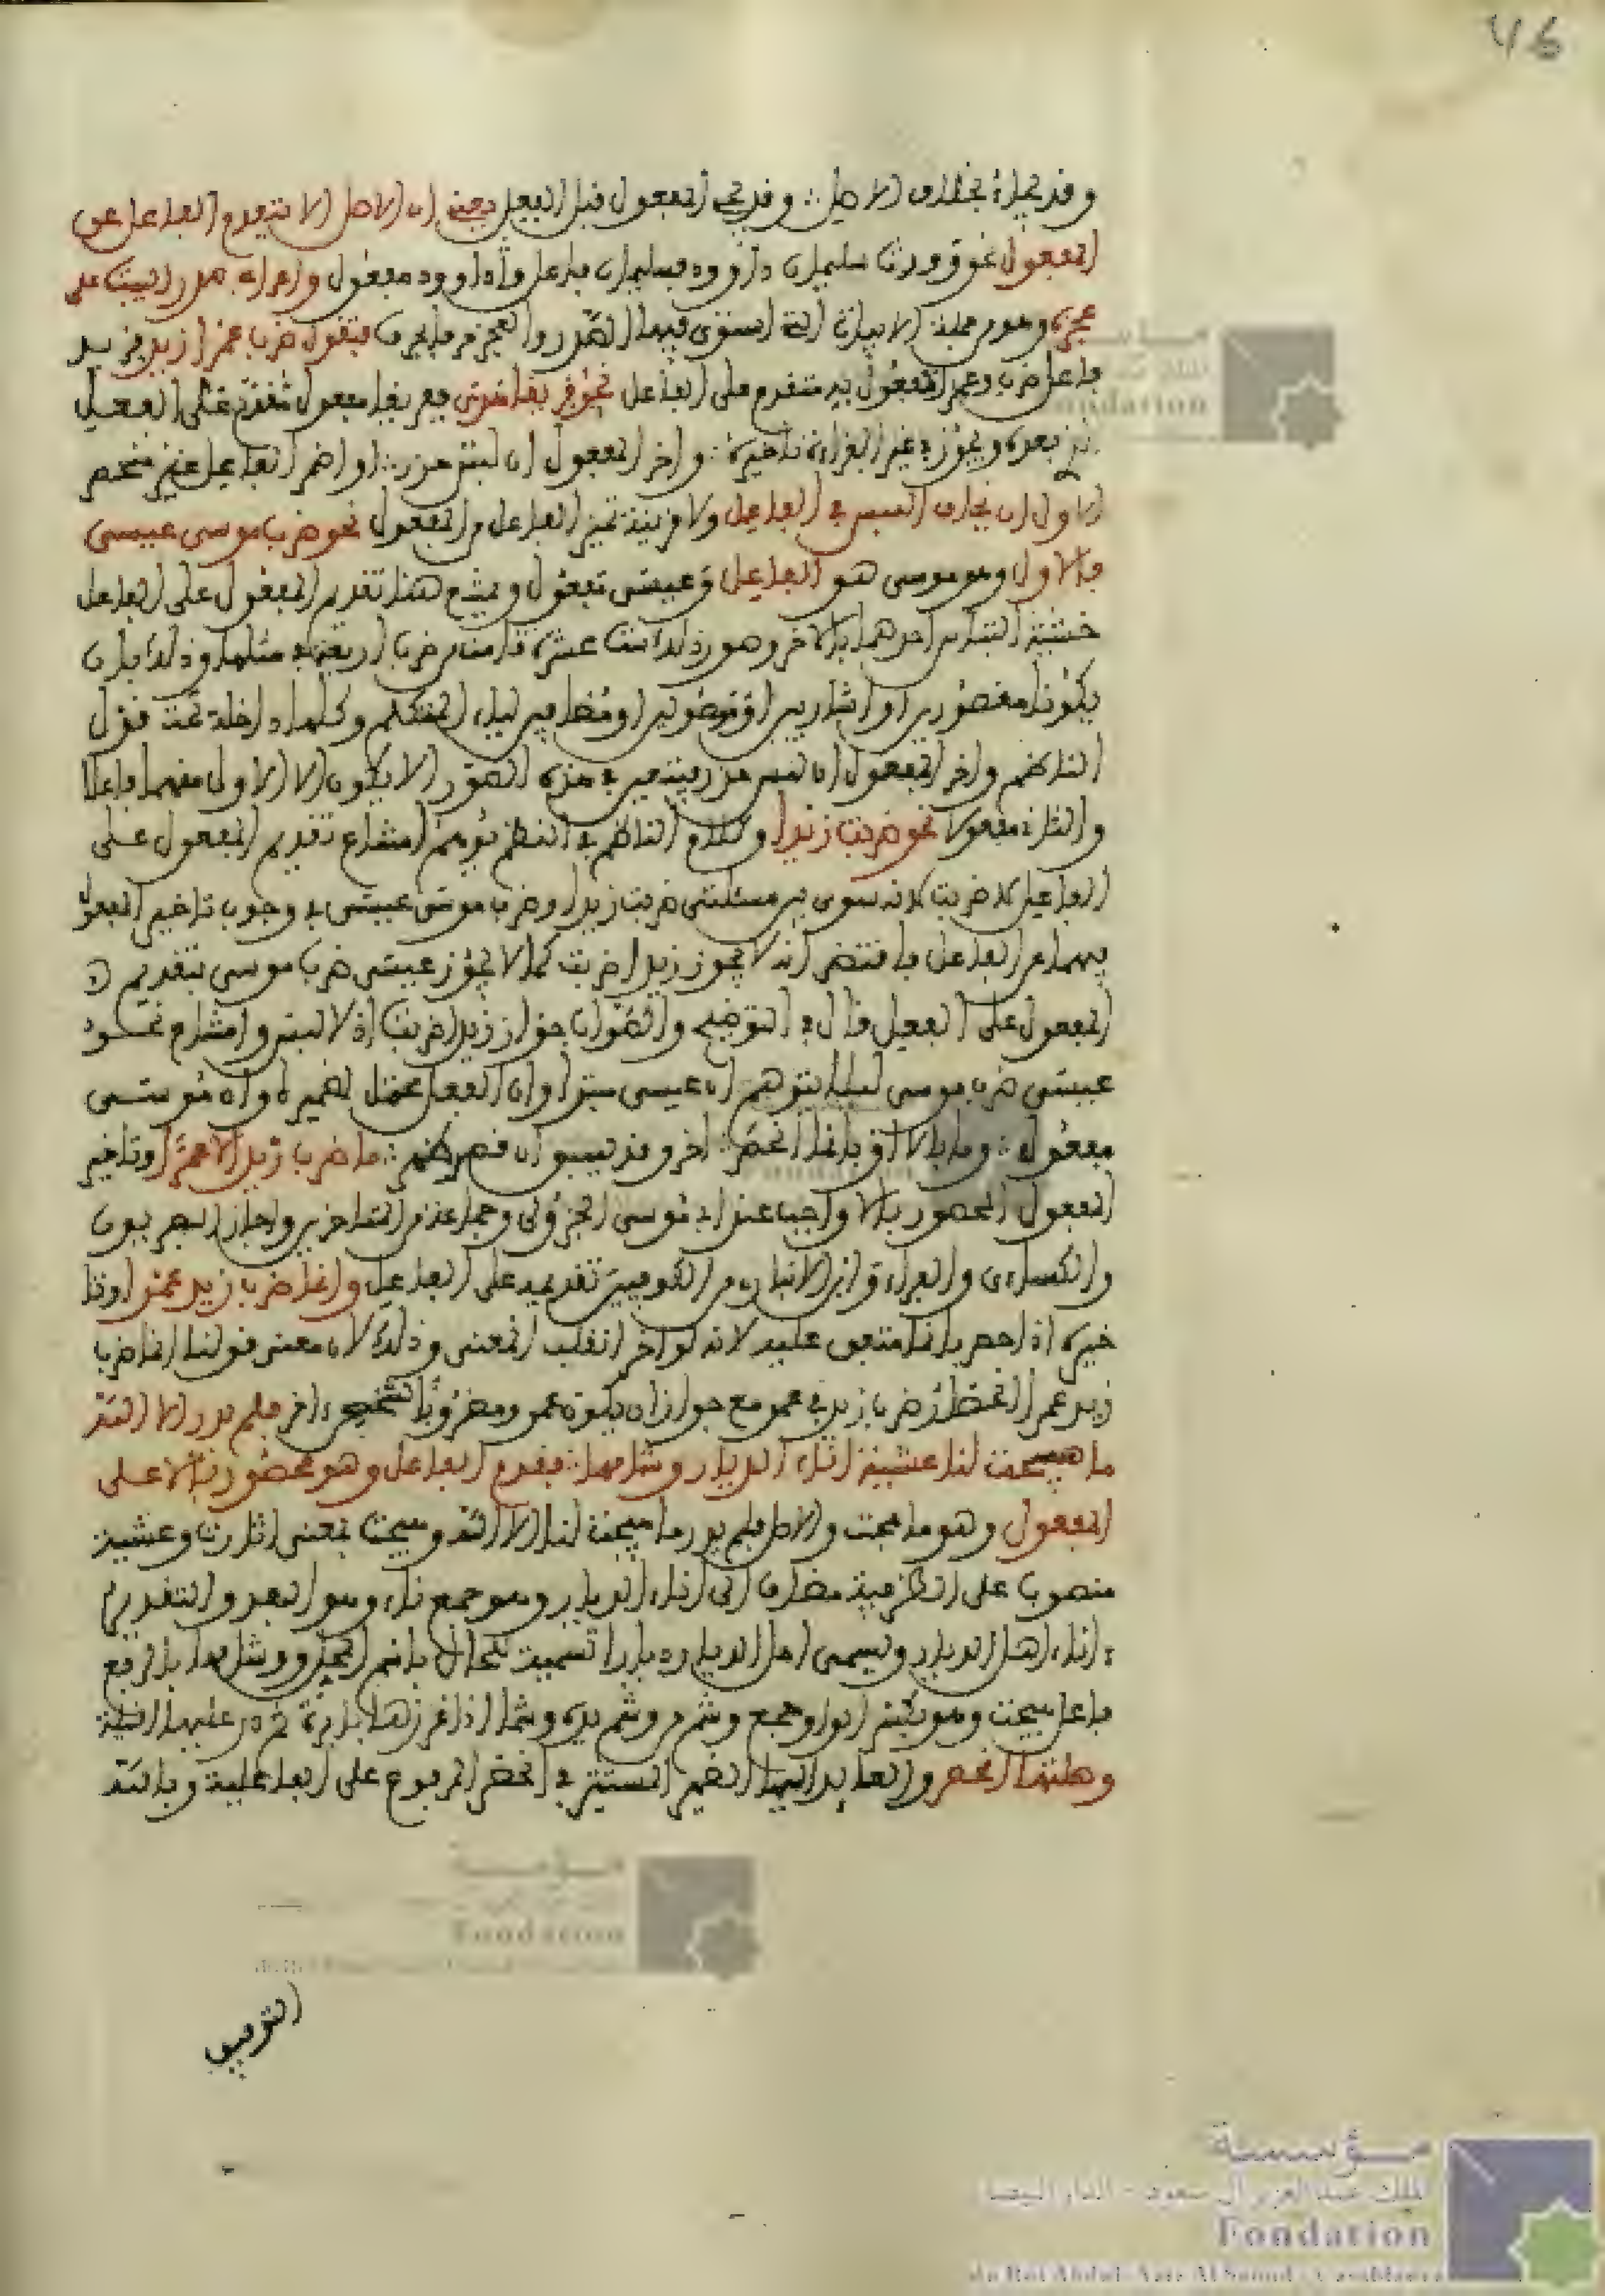 46
وقد يجاء بخلاف الاصل : وقد يجي المفعول قبل الفعل يعني ان الاصل الا يتقدم الفاعل عن
المفعول نحو وورث سليمان داوود فسليمان فاعل وداوود مفعول واعرابه صدر البيت على
عجزه وهو من جملة الابيات التي استوى فيها الصدر والعجز فتقول ضرب عمرا زيد فزيد
فاعل ضرب وعمرا مفعول به متقدم على الفاعل نحو فريقا هدى ففريقا مفعول مقدم على الفعل
بعده ويجوز في غير القران تاخيره : واخر المفعول ان لبس حذر : او اضمر الفاعل غير منحصر
الاول ان يخاف اللبس في الفاعل ولا قرينة تميز الفاعل من المفعول نحو ضرب موسى عيسى
فالاول وهو موسى هو الفاعل وعيسى مفعول ويمتنع هنا تقديم المفعول على الفاعل
خشية التباس احدهما بالاخر وصور ذلك ست عشرة قامت من ضرب اربعة في مثلها وذلك بان
يكونا مقصورين او اشاريين او موصولين او مضافين لياء المتكلم وكلها داخلة تحت قول
الناظم واخر المفعول ان لبس حذر فيتعين في هذه الصور الا يكون الا الاول منهما فاعلا
والثاني مفعولا نحو ضربت زيدا وكلام الناظم في النظم يوهم امتناع تقديم المفعول على
الفاعل كضربت لانه سوى بين مسئلتي ضربت زيدا وضرب موسى عيسى في وجوب تاخير المفعول
فيهما عن الفاعل فاقتضى انه لا يجوز زيدا ضربت كما لا يجوز عيسى ضرب موسى بتقديم
المفعول على الفعل قال في التوضيح والصواب جواز زيدا ضربت اذ لا لبس وامتناع نحو
عيسى ضرب موسى ليلا يتوهم ان عيسى مبتدا وان الفعل محتمل لضميره وان موسى
مفعول : وما بالا او بانما انحصر : اخر وقد يسبق ان قصد ظهر : ما ضرب زيد الا عمرا وتاخير
المفعول المحصور بالا واجب عند ابي موسى الجزولي وجماعة من المتاخرين واجاز البصريون
والكساءي والفراء وابن الانباري من الكوفيين تقديمه على الفاعل وانما ضرب زيد عمرا وتا
خيره اذا حصر بانما متفق عليه لانه لو اخر انقلب المعنى وذلك لان معنى قولنا انما ضرب
زيد عمرا انحصار ضرب زيد في عمرو مع جواز ان يكون عمرو مضروبا لشخص اخر فلم يدر الا الله
ما هيجت لنا عشية اناء الديار وشامها : فقدم الفاعل وهو محصور بالا على
المفعول وهو ما هيجت والاصل فلم يدر ما هيجت لنا الا الله وهيجت بمعنى اثارت وعشية
منصوب على الظرفية مضاف الى اناء الديار وهو جمع ناء وهو البعد والتقدير
اناء اهل الديار ويسمى اهل الديار ديارا تسمية للحال باسم المحل ووشامها بالرفع
فاعل هيجت وهو بكسر الواو جمع وشم من وشم يده وشما اذا غرزها بابرة ثم ذر عليها النيلة
وهلتها انحصر والعايد اليها الضمير المستتر في انحصر المرفوع على الفاعلية وبالله
التوفيق
مؤسسة
الملك عبد العزيز آل سعود - الدار البيضاء
Fondation
du Roi Abdul-Aziz Al Saoud - Casablanca